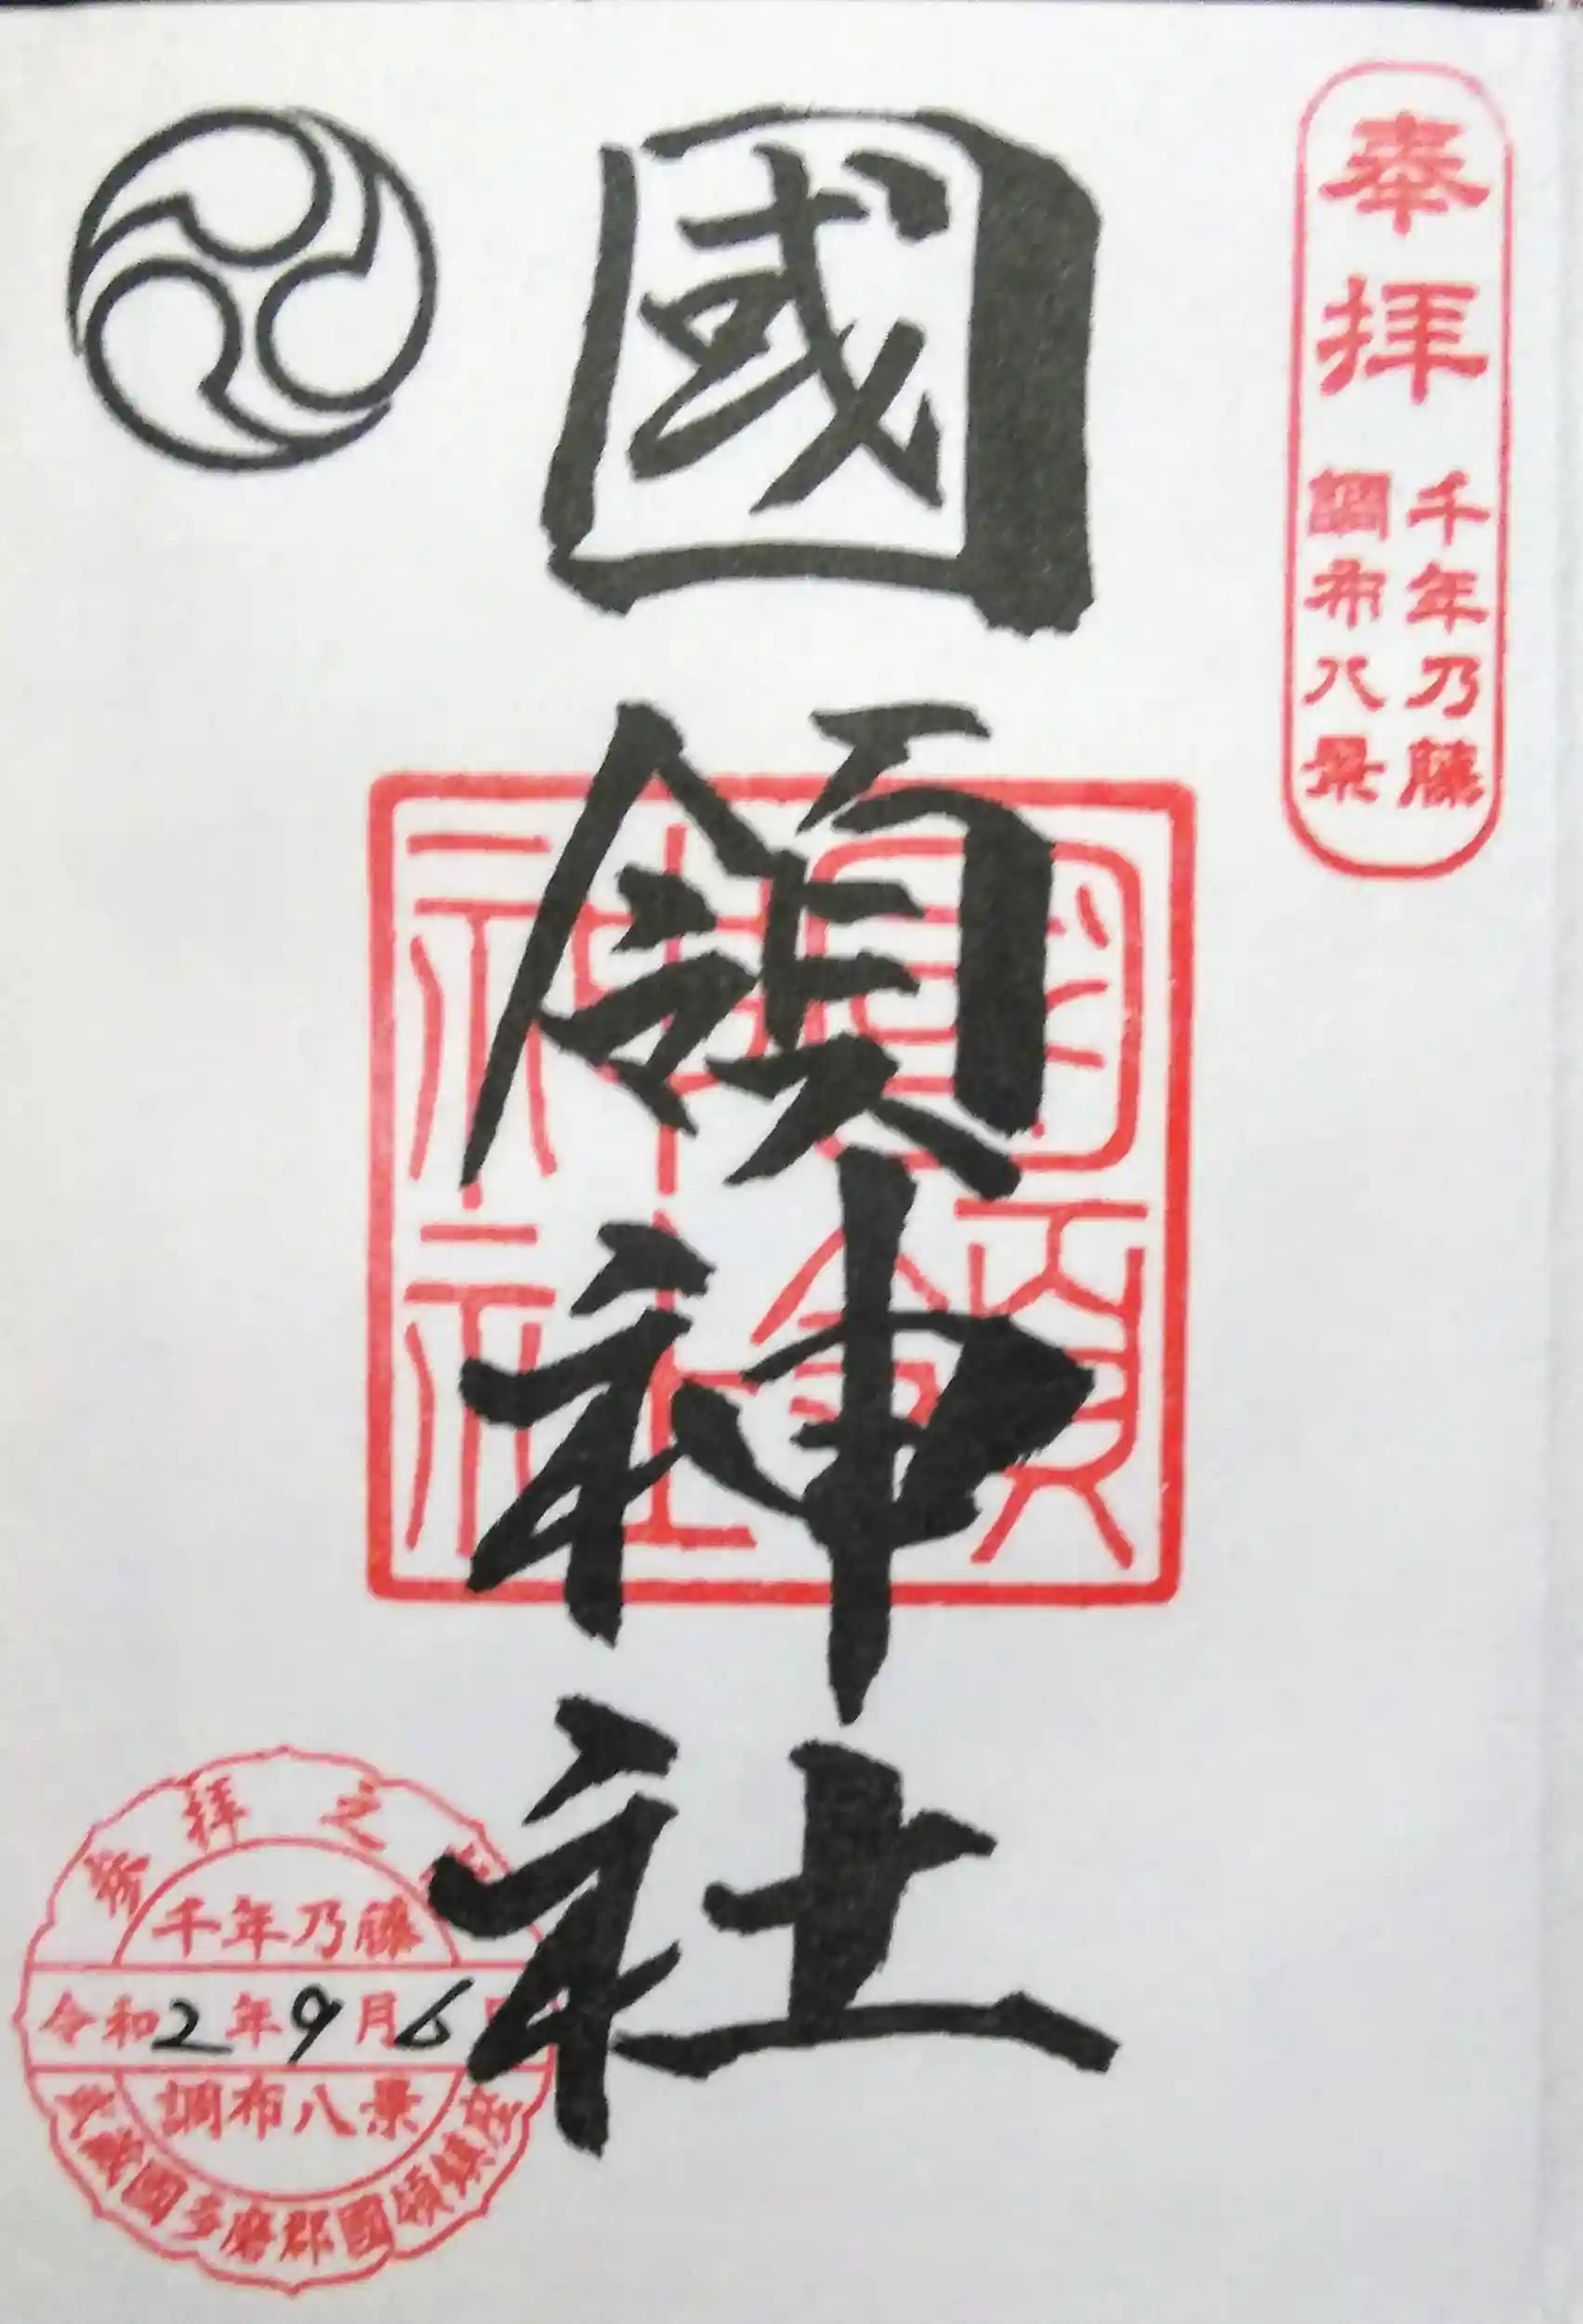 奉拝
千年乃藤
調布八景
國領神社
國領神社
参拝之
千年乃藤
令和2年9月6日
調布八景
武蔵國多磨郡國領鎮守